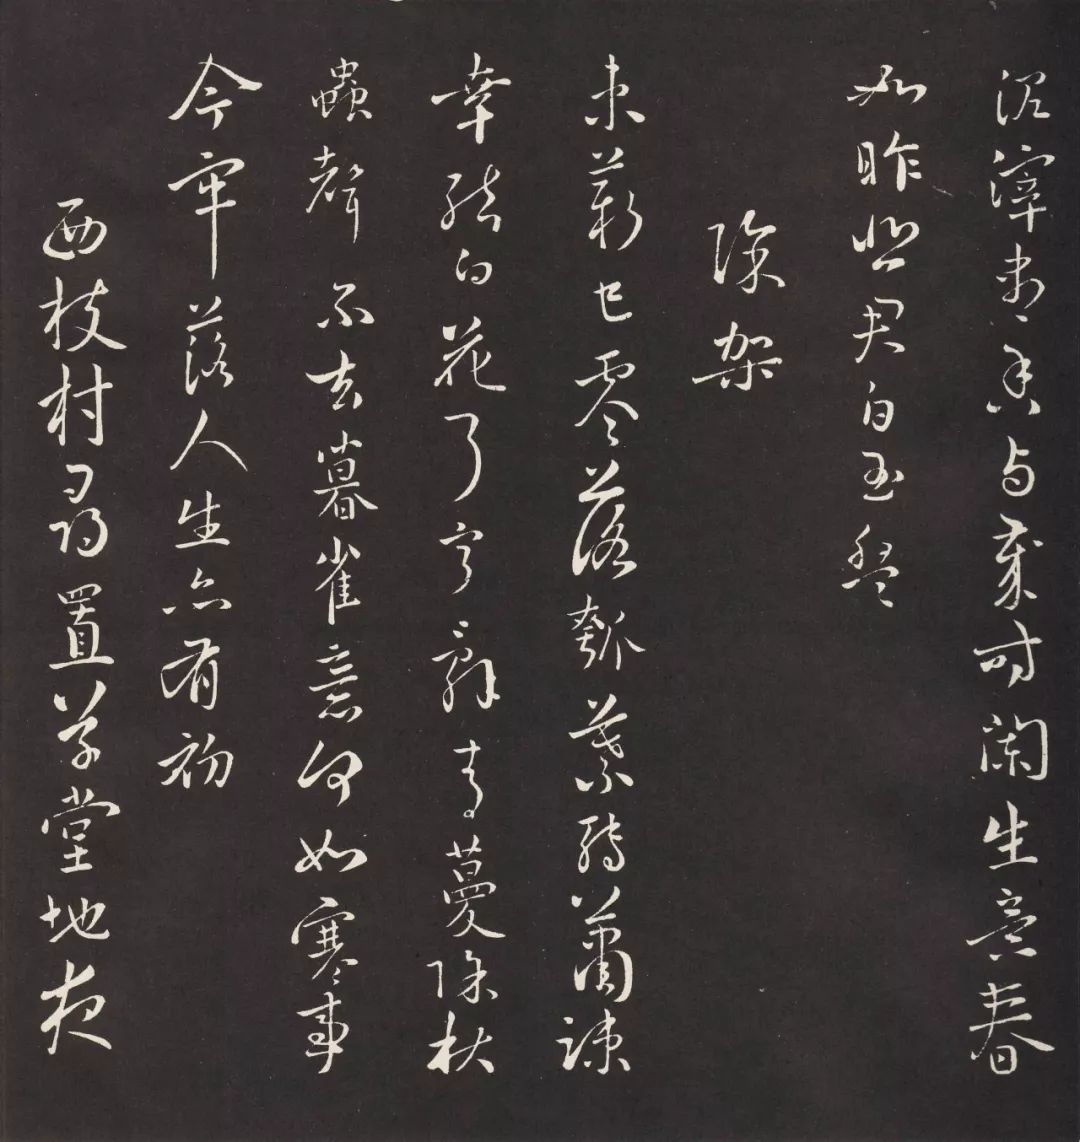 泥滓盡香與歲時闌生意春
如昨悲君白玉盤
除架
束薪已零落瓠葉轉蕭疎
幸結白花了寧辭青蔓除秋
蟲聲不去暮雀意何如寒事
今牢落人生亦有初
西枝村尋置草堂地夜